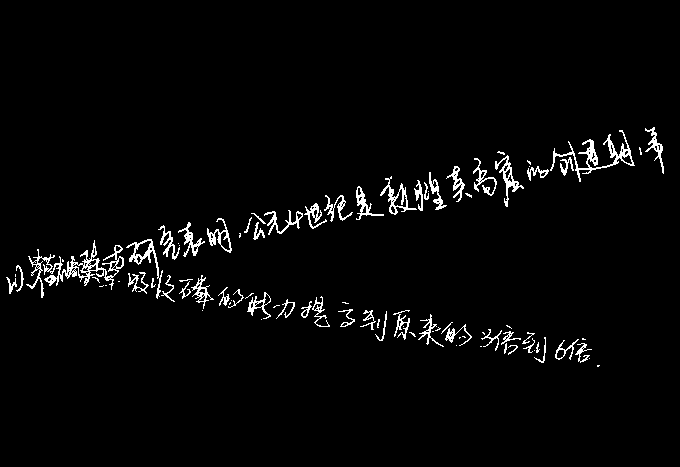 研究表明,公元4世纪是敦煌莫高窟的创建期,第
吸收磷的能力提高到原来的3倍到6倍.